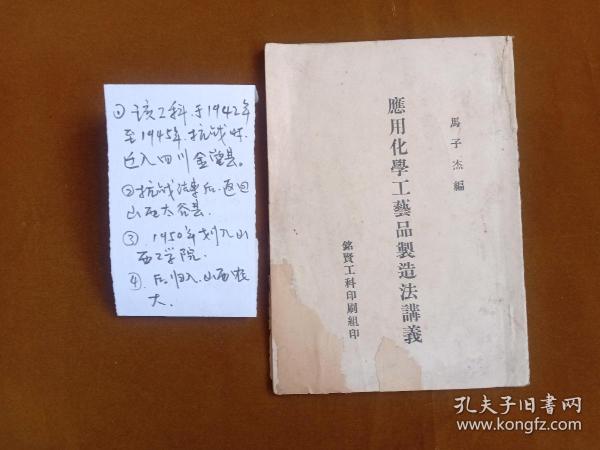 ①该工科于1942年
至1945年抗战时
迁入四川金堂县。
②抗战结束后返回
山西太谷县.
③ 1950年划入山
西工学院.
④ 后归入山西农
大.
馬子杰編
應用化學工藝品製造法講義
銘賢工科印刷組印
孔夫子旧书网
www.kongfz.com